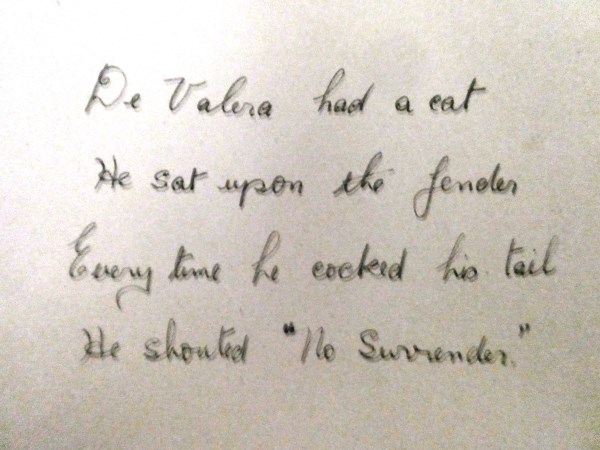 De Valera had a cat
He sat upon the fender
Every time he cocked his tail
He shouted "No Surrender."